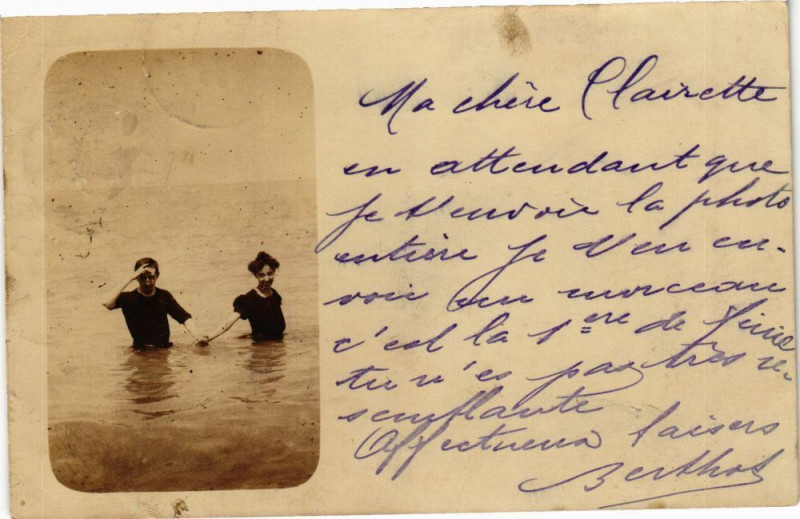 Ma chère Clairette
en attendant que
je t'envoie la photo
entière je t'en en-
voie un morceau
c'est la 1ère de
tu n'es pas très re-
semblante
Affectueux baisers
Berthot